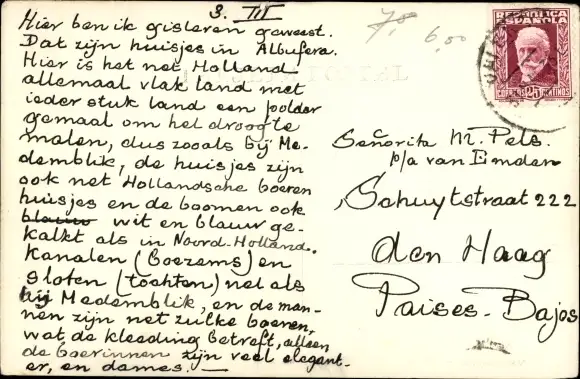 3. III
Hier ben ik gisteren geweest.
Dat zijn huisjes in Albufera.
Hier is het net Holland
allemaal vlak land met
ieder stuk land een polder
gemaal om het droog te
malen, dus zooals bij Me-
demblik, de huisjes zijn
ook net Hollandsche boeren
huisjes en de boomen ook
blauw wit en blauw ge-
kalkt als in Noord-Holland.
Kanalen (Boezems) en
sloten (tochten) net als
bij Medemblik, en de man-
nen zijn net zulke boeren,
wat de kleeding betreft, alleen
de boerinnen zijn veel elegant-
er, en dames. —
7,8
6,50
REPUBLICA
ESPAÑOLA
CORREOS 25 CENTIMOS
Señorita M. Pels.
p/a van Emden
Schuytstraat 222
den Haag
Paises-Bajos